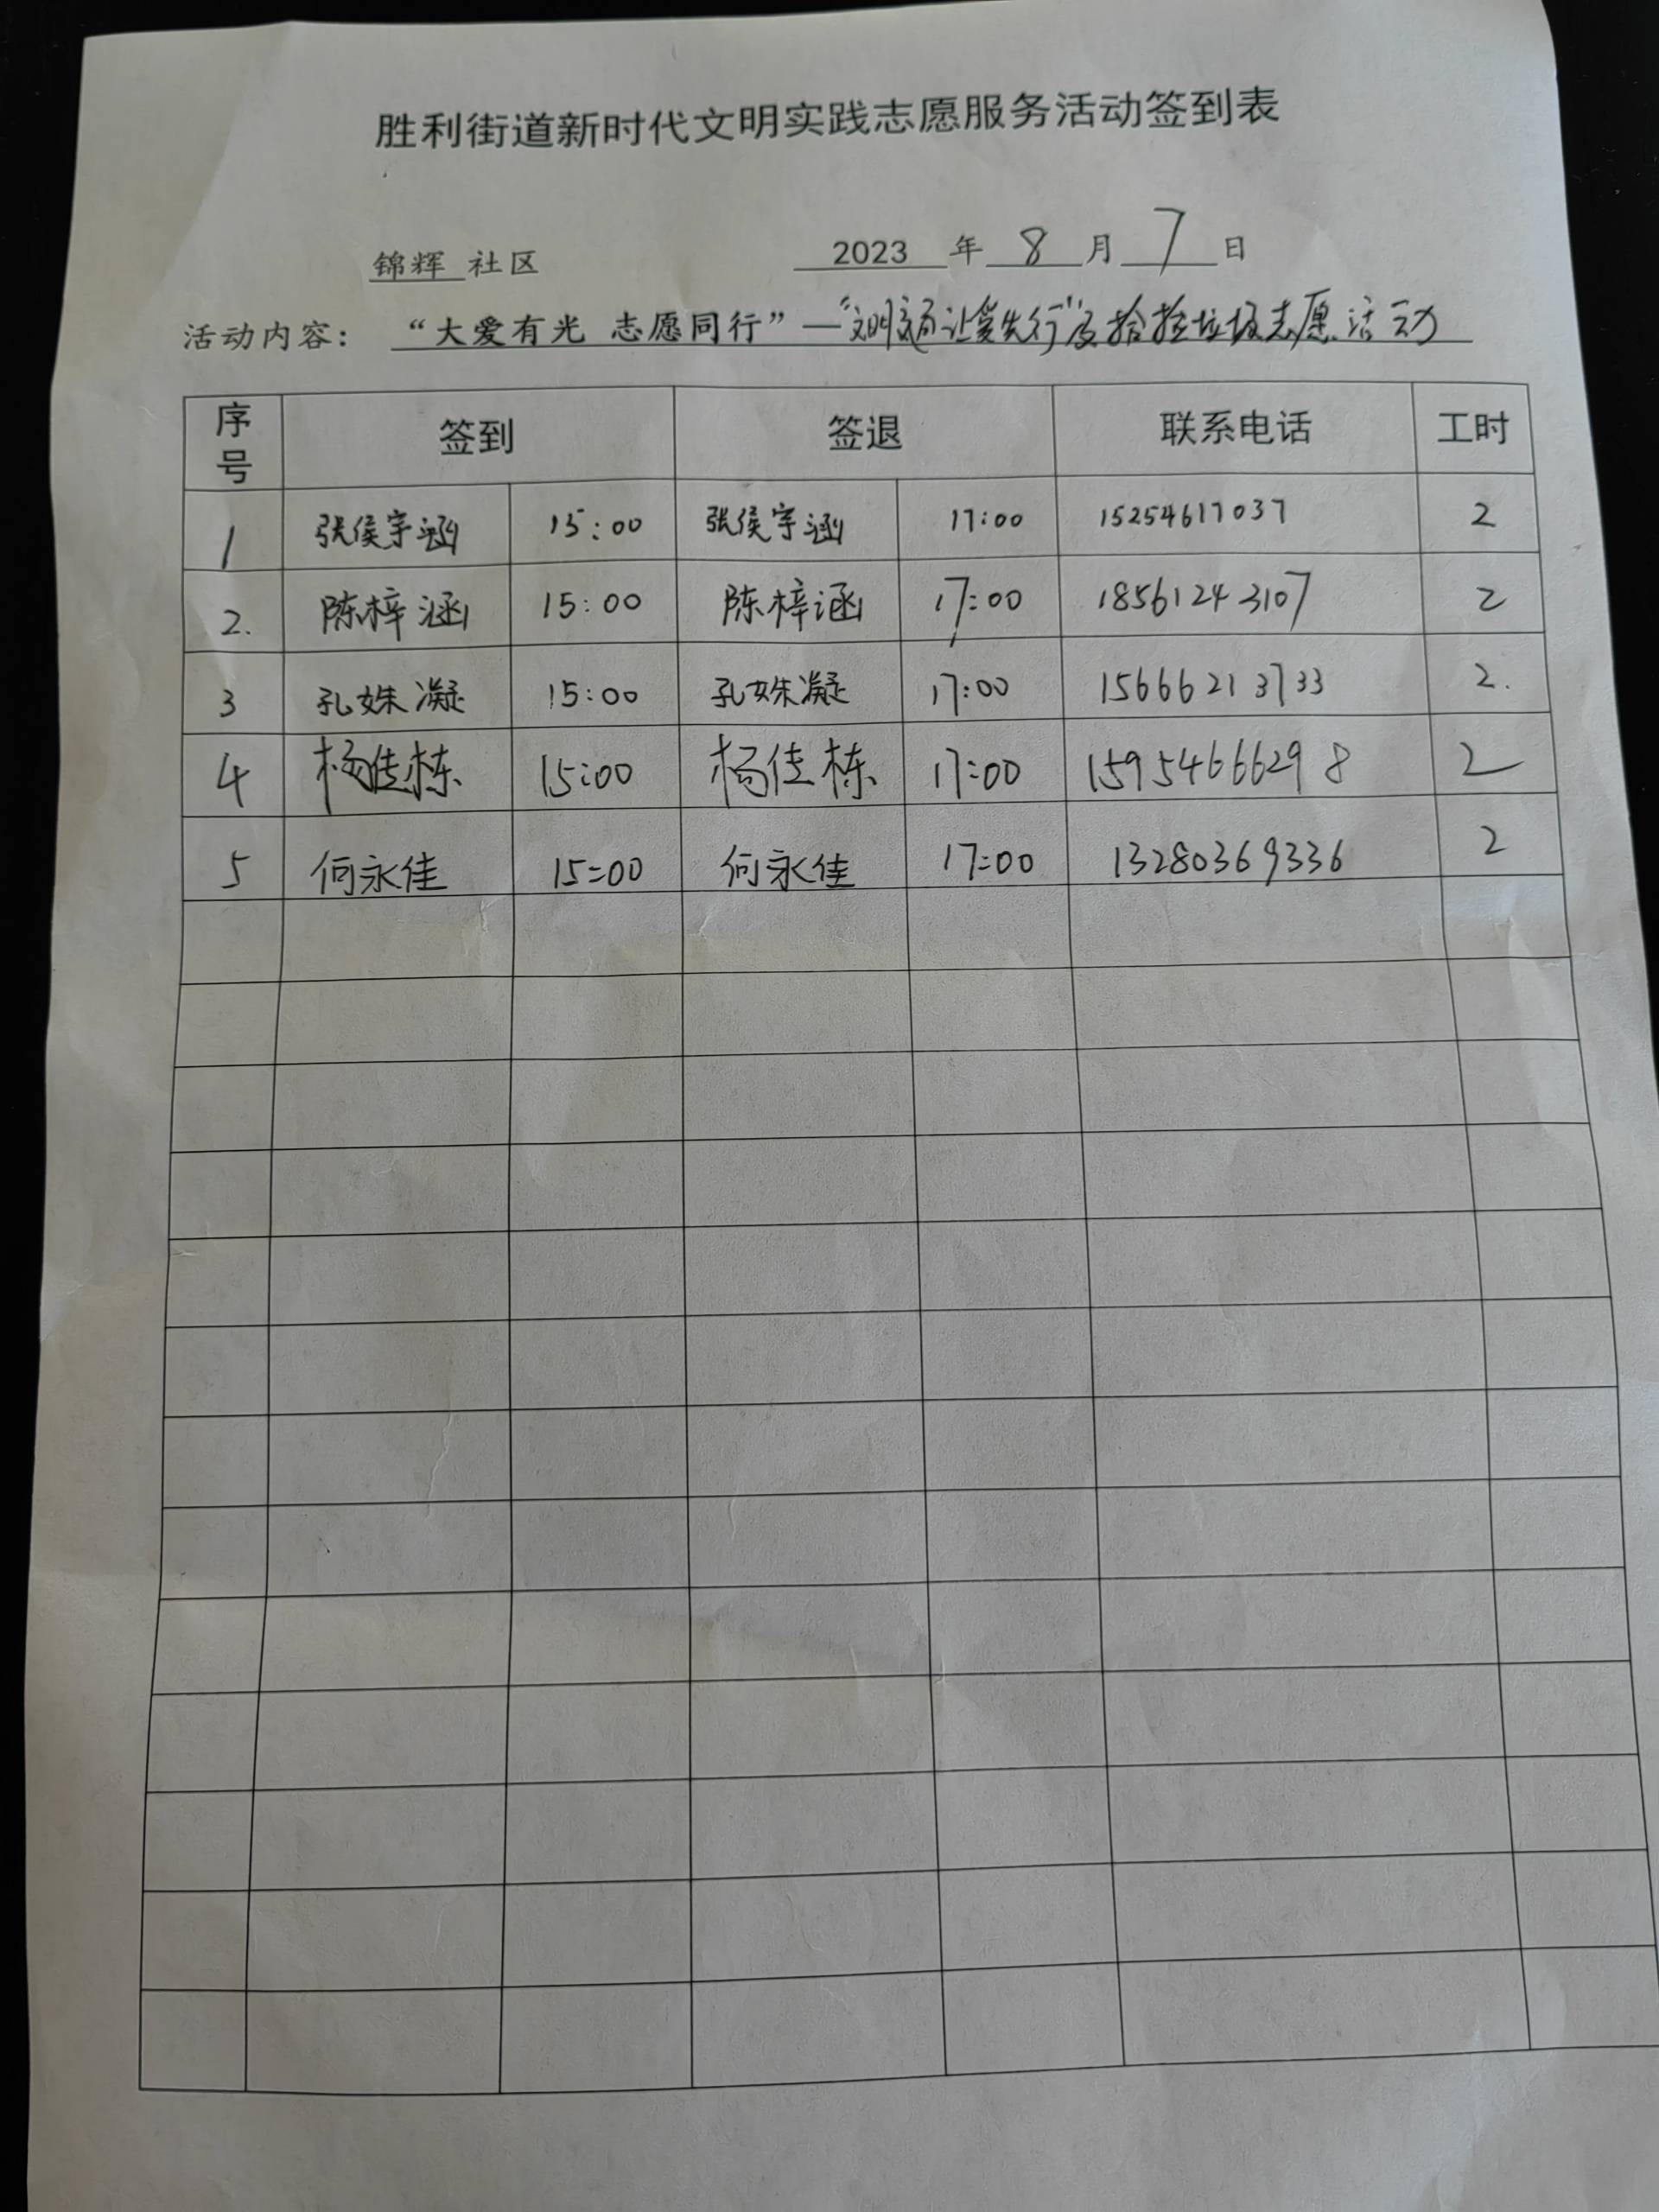 胜利街道新时代文明实践志愿服务活动签到表
锦辉 社区 2023 年 8 月 7 日
活动内容： “大爱有光 志愿同行”—“文明交通让爱先行”及捡拾垃圾志愿活动
序号 签到 签退 联系电话 工时
1 张侯宇涵 15:00 张侯宇涵 17:00 15254617037 2
2. 陈梓涵 15:00 陈梓涵 17:00 18561243107 2
3 孔姝凝 15:00 孔姝凝 17:00 15666213733 2.
4 杨佳栋 15:00 杨佳栋 17:00 15954666298 2
5 何永佳 15:00 何永佳 17:00 13280369336 2